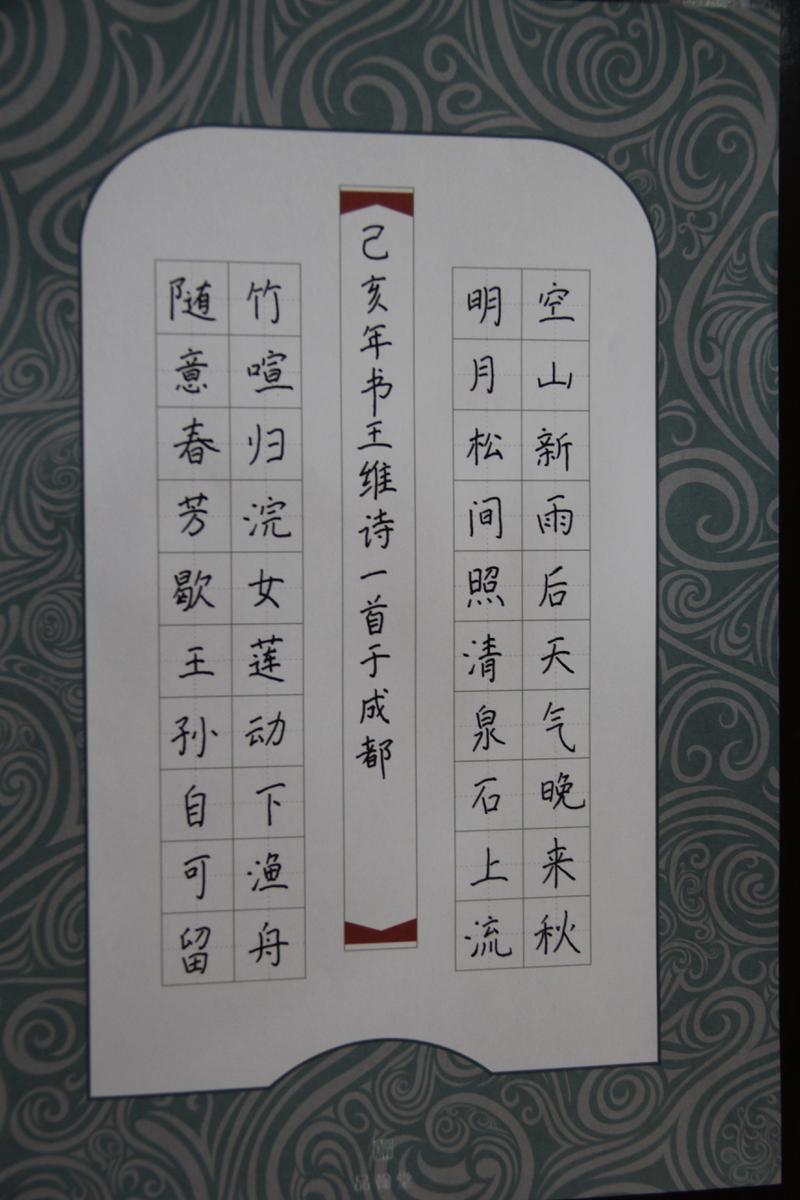 空山新雨后天气晚来秋
明月松间照清泉石上流
己亥年书王维诗一首于成都
竹喧归浣女莲动下渔舟
随意春芳歇王孙自可留
品翰堂